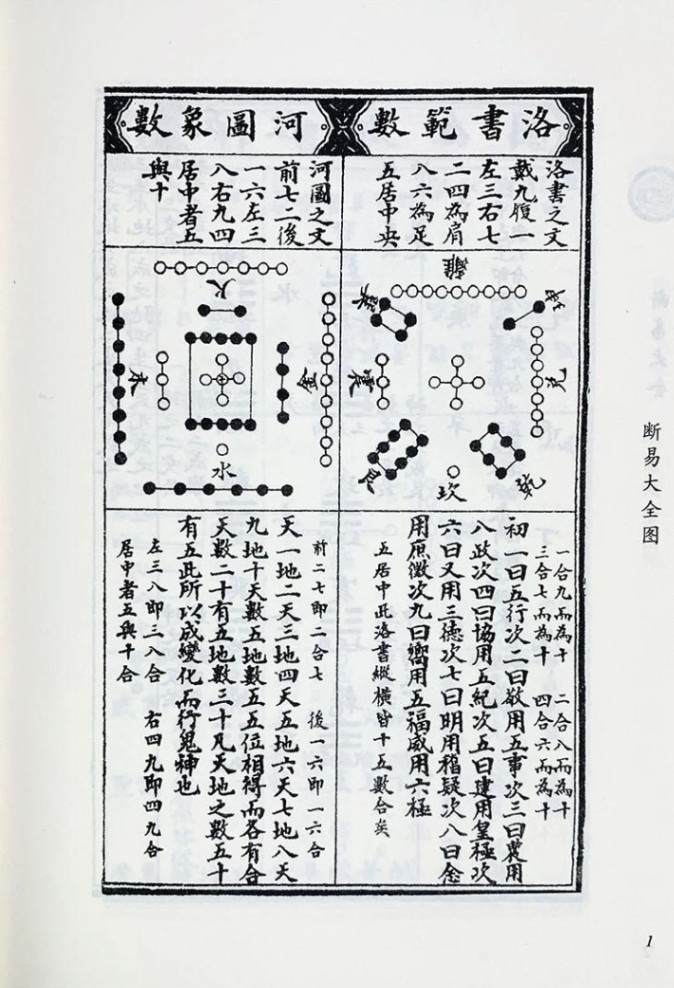 洛書範數
洛書之文
戴九履一
左三右七
二四為肩
八六為足
五居中央
離
巽
坤
震
兌
艮
坎
乾
一合九而為十 二合八而為十
三合七而為十 四合六而為十
初一曰五行次二曰敬用五事次三曰農用
八政次四曰協用五紀次五曰建用皇極次
六曰又用三德次七曰明用稽疑次八曰念
用庶徵次九曰嚮用五福威用六極
五居中此洛書縱橫皆十五數合矣
河圖象數
河圖之文
前七二後
一六左三
八右九四
居中者五
與十
火
木
金
水
前二七即二合七 後一六即一六合
天一地二天三地四天五地六天七地八天
九地十天數五地數五五位相得而各有合
天數二十有五地數三十凡天地之數五十
有五此所以成變化而行鬼神也
左三八即三八合 右四九即四九合
居中者五與十合
断易大全图
1